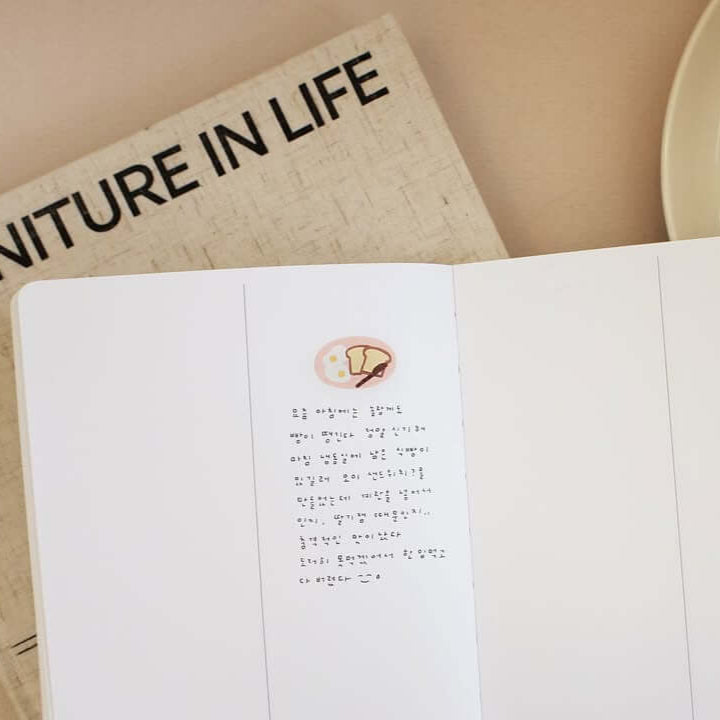 NITURE IN LIFE
요즘 아침에는 놀랍게도
빵이 땡긴다 정말 신기해
마침 냉동실에 남은 식빵이
있길래 오이 샌드위치?를
만들었는데 계란을 넣어서
인지, 딸기잼 때문인지..
충격적인 맛이 났다
도저히 못먹겠어서 한입먹고
다 버렸다